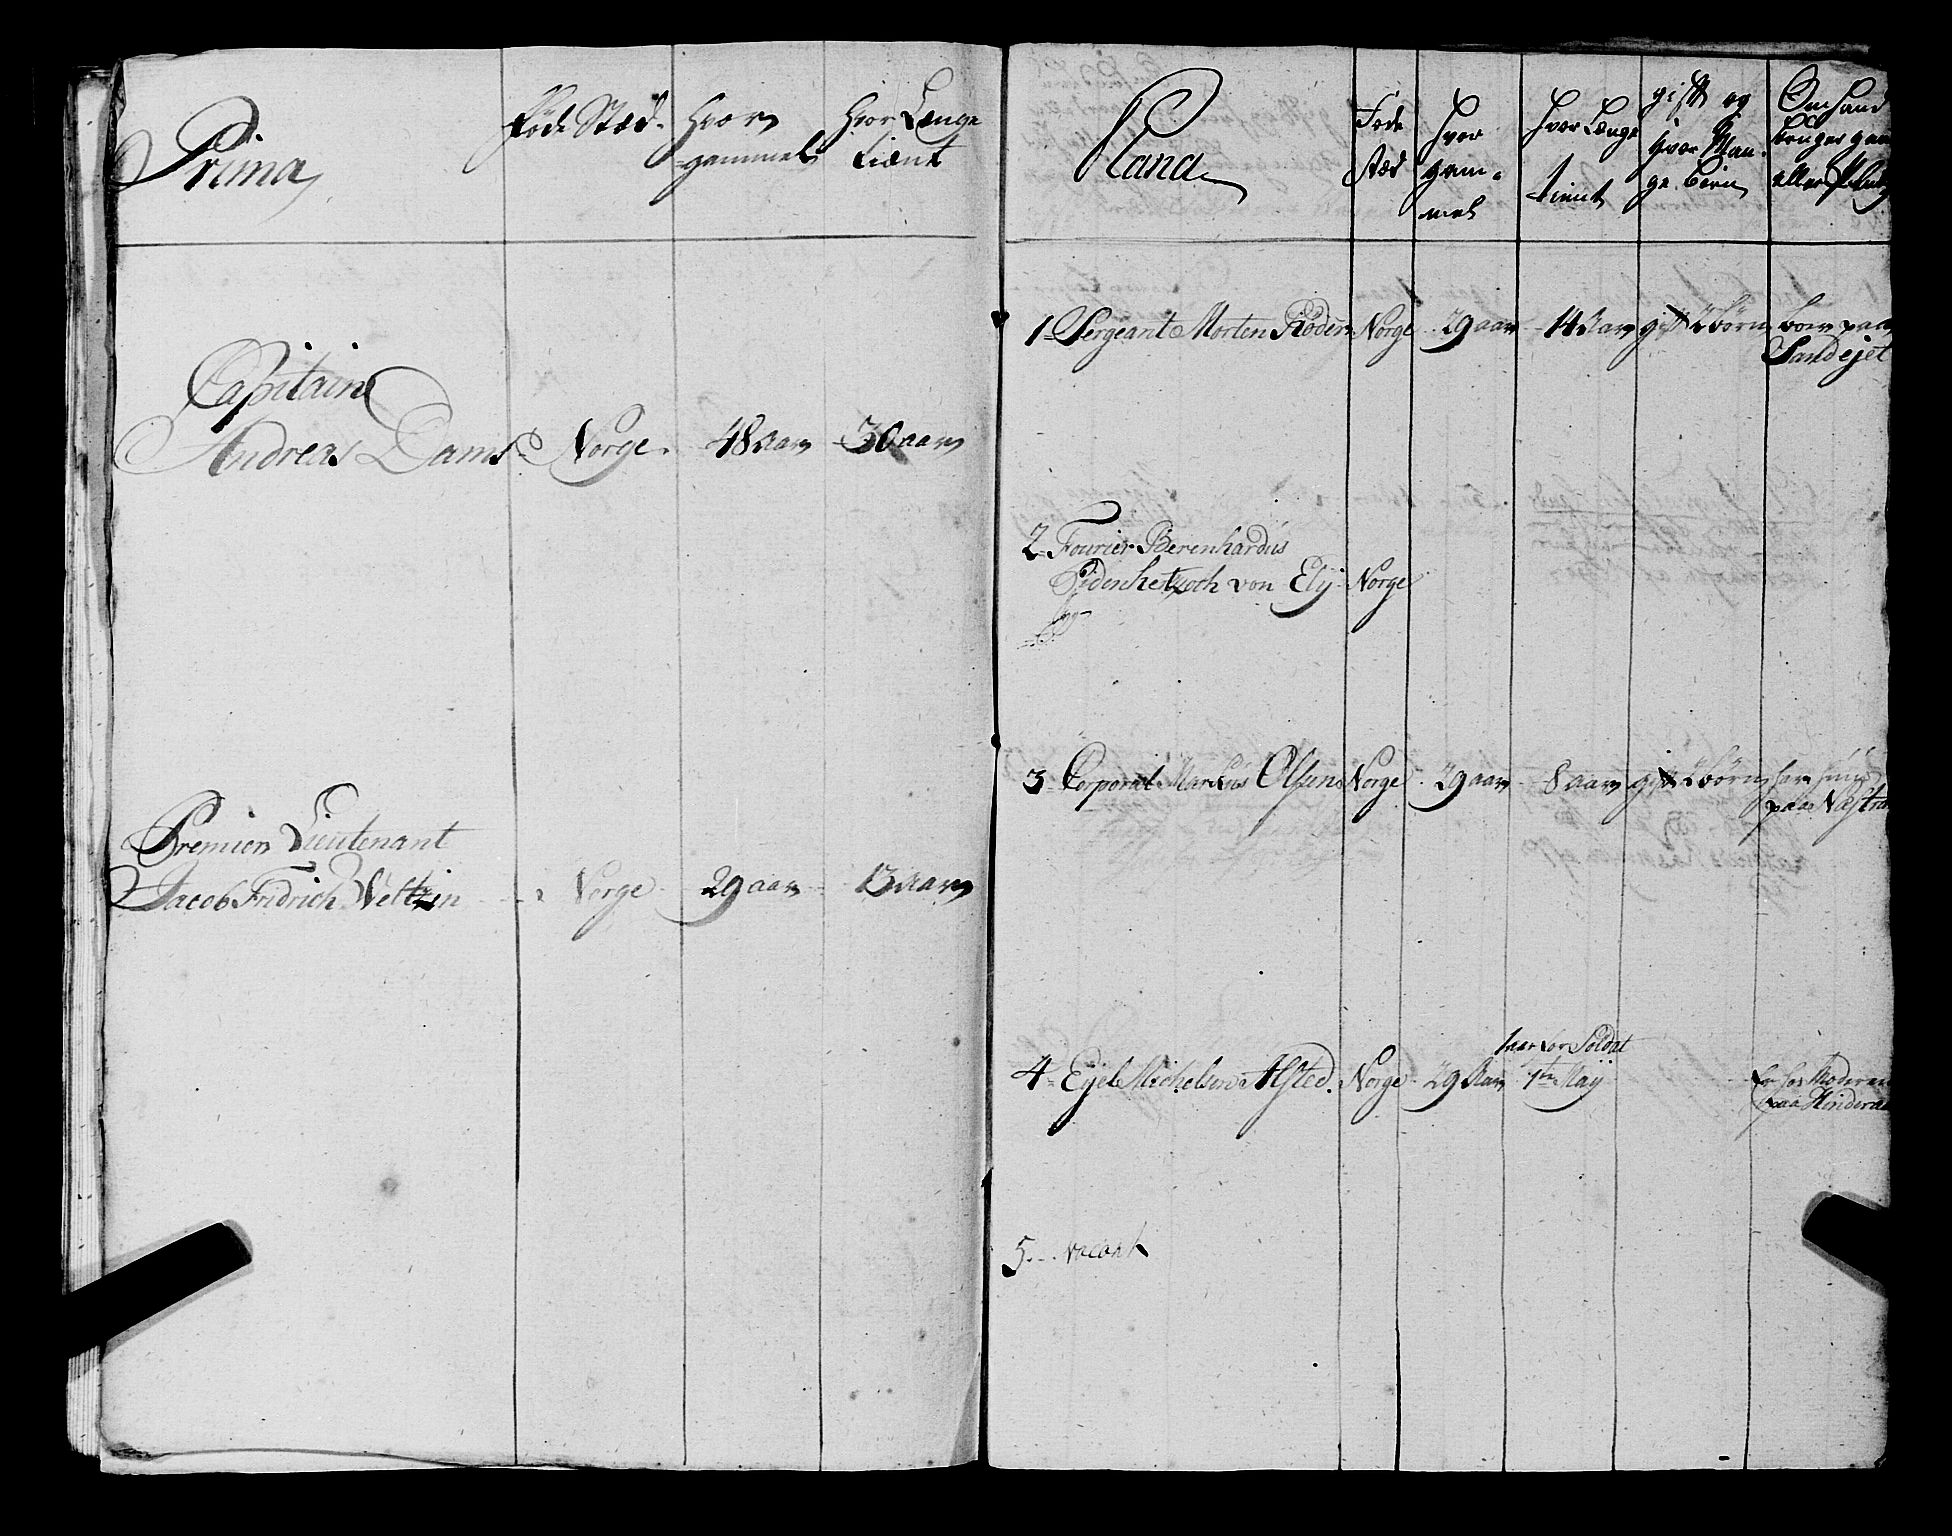 Prima
Føde Stæd
Hvor
gammel
Hvor Længe
tiænt
Capitain
Andreas Dams
Norge
48 aar
30 aar
Premier Lieutenant
Jacob Fridrich Weltzin
Norge
29 aar
13 aar
Rana
Føde
stæd
Hvor
gam-
mel
Hvor Længe
tient
gift og
hvor Man-
ge børn
eller
1 Sergeant Morten Røder Norge 29 aar 14 aar gift 2 børn boer paa
Sandejet
2 Fourier Berenhardus
von Elij Norge
3 Corporal Markus Olsen Norge 29 aar 8 aar gift 2 børn har huus
paa
4 Ejel Michelsen Alsted Norge 29 aar
for Soldat
1te Maij
er hos Moderen
paa
5 vacant